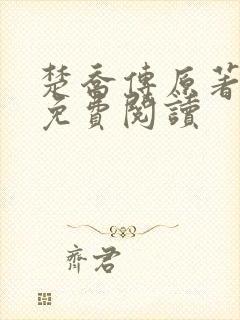 楚喬傳原著
免費閱讀
齊君